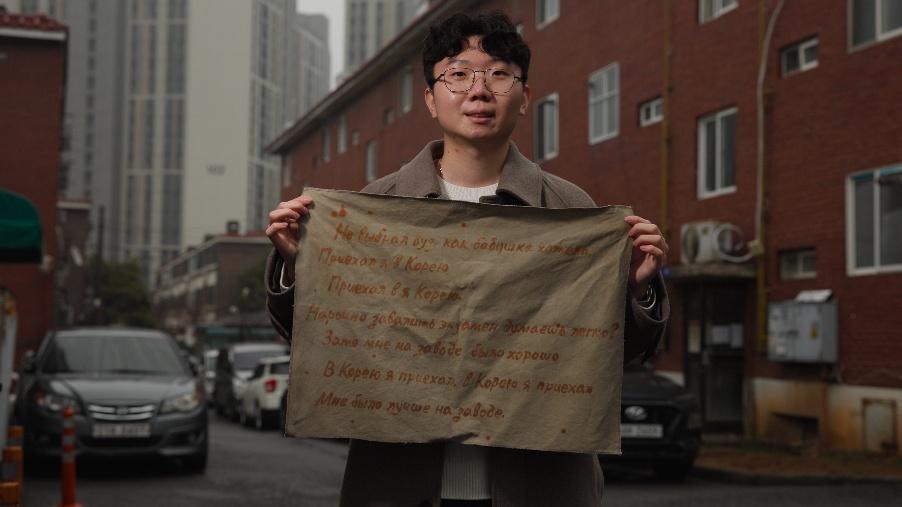 Не выбрал вуз, как бабушка хотела
Приехал я в Корею
Приехал в я Корею
Нарочно завалить экзамен думаешь легко?
Зато мне на заводе было хорошо
В Корею я приехал, в Корею я приехал
Мне было лучше на заводе.